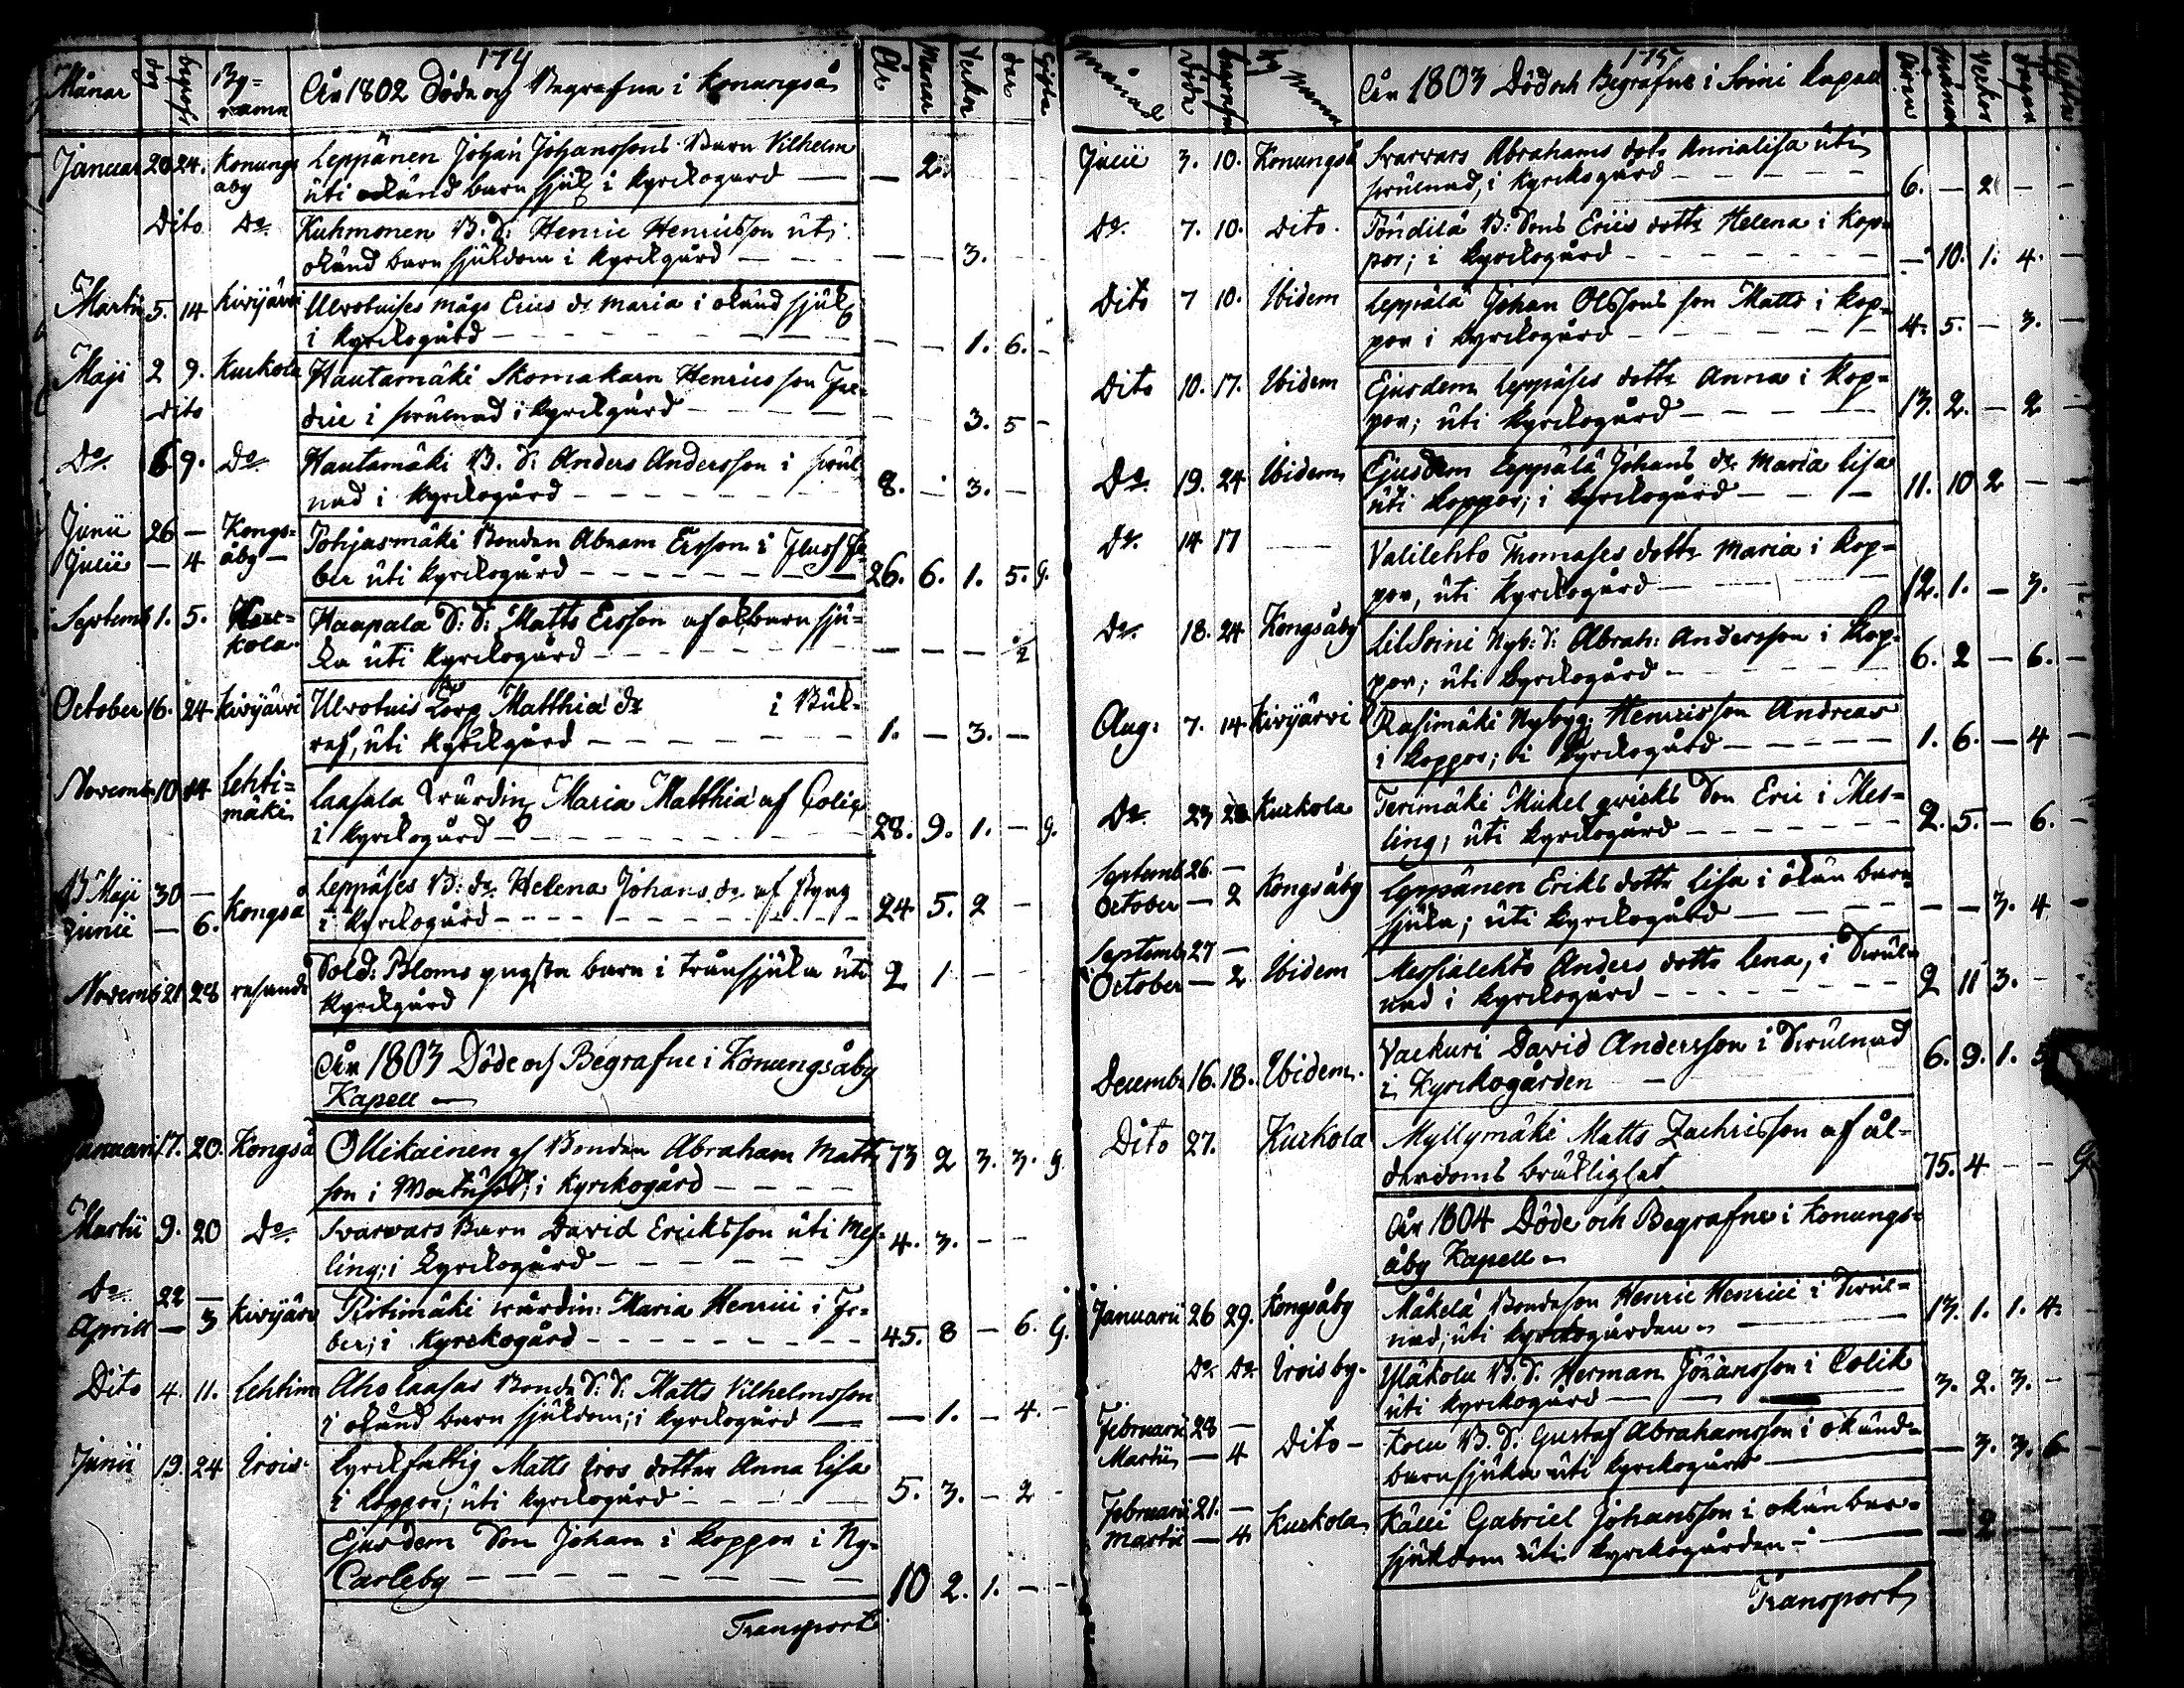 174
Månar dag begrafd By= namn År 1802 Döde och Begrafne i Konungså År Månar Veckor dar Gifta
Januar 20 24. Konungs åby Leppänen Johan Johanssons Barn Vilhelm
uti okänd barn sjuk i Kyrckogård — — 2.
Dito Do Kuhmonen B. S: Henric Henricsson uti
okänd barn sjukdom i Kyrckgård — — — 3.
Martii 5. 14 Kivijärvi Ulvotuises mågs Erics dr Maria i okänd sjuk
i Kyrckogård — — 1. 6. -
Maji 2 9. Kurkola Hautamäki Skomakarn Henrics son Fre=
Dito dric i hvulnad i Kyrckgård — 3. 5 -
Do 6 9. Do Hautamäki B. S: Anders Andersson i hvul
nad i Kyrckogård — 8. — 3. —
Junii 26 — Kongs= Pohjasmäki Bonden Abram Ersson i Fluss fe
Julii — 4 åby — ber uti Kyrckogård — 26. 6. 1. 5. g.
Septemb 1. 5. Kur= Haapala S: S: Matts Ersson af ok barn sju=
kola ka uti Kyrckogård — — — — 2
October 16. 24 Kivijärvi Ulvotuis Torp Matthiæ dr i Bul=
, uti Kyrckgård — 1. — 3. —
Novemb 10 14 Lehti= Laasala Värdin Maria Matthiæ af Colig
mäki i Kyrckogård — 28. 9. 1. — g.
Maji 30 — Leppäses B: dr Helena Johans dr af styng
Junii — 6. Kongså i Kyrckogård — 24 5. 2 —
Novemb 21 28 resande Sold: Bloms yngsta barn i trånsjuka uti 2 1 —
Kyrckgård
År 1803 Döde och Begrafne i Konungsåby
Kapell —
Januari 17. 20. Kongså Ollikainen gl Bonden Abraham Matts 73 2 3. 3. g.
son i ; i Kyrckogård —
Martii 9. 20 Do Svarvars Barn David Ericksson uti Mes= 4. 3. - -
ling; i Kyrckogård —
Do 22 — Pirttimäki värdin: Maria Henrici i Fe=
Aprill — 3 Kivijärv ber; i Kyrckogård — 45. 8 — 6. g.
Dito 4. 11. Lehtim Aho Laasas Bonde S: S: Matts Vilhelmsson
i okänd barn sjukdom; i Kyrckogård — — 1. — 4. -
Junii 19. 24 Irois Kyrckfattig Matts Iros dotter Anna Lisa
i koppor; uti Kyrckogård — 5. 3. — 2 -
Ejusdem Son Johan i koppor i Ny=
Carleby — 10 2. 1. — -
Transport
175
Månad Döde begrafne by Namn År 1803 Död och Begrafne i Soini Kapell Åren Månar Veckor dagar Gifta
Julii 3. 10. Konungså Svarvars Abrahams dotr Annalisa uti
hvulnad, i Kyrckogård — 6. — 2 — -
Do 7. 10. Dito. Töndilä B: Sons Erics dotr Helena i kop=
por; i Kyrckogård — — 10. 1. 4. -
Dito 7 10. Ibidem Leppälä Johan Olssons son Matts i kop=
por i Kyrckogård — 4. 5. — 3. -
Dito 10. 17. Ibidem Ejusdem Leppäses dottr Anna i kop=
por; uti Kyrckogård — 13. 2. — 2 —
Do 19. 24 Ibidem Ejusdem Leppälä Johans dr Maria Lisa
uti koppor; i Kyrckogård — 11. 10 2 — -
Do 14 17 — Valilehto Thomases dottr Maria i kop=
por, uti Kyrckogård — 12. 1. — 3.
Do 18. 24 Kongsåby LilSoini Nyb: S: Abrah: Andersson i kop=
por; uti Kyrckogård — 6. 2 — 6. -
Aug: 7. 14 Kivijärvi Rasimäki Nybyg: Henricsson Andreas
i koppor; i Kyrckogård — 1. 6. — 4 -
Do 23 28 Kurkola Terimäki Mickel Son Eric i Mes=
ling; uti Kyrckogård — 2. 5. — 6. -
Septemb 26. — Leppänen Eriks dottr Lisa i okän barn
October — 2 Kongsåby sjuka; uti Kyrckogård — — — 3. 4 -
Septemb 27 — Messialehto Anders dottr Lena, i Svul=
October — 2 Ibidem nad i Kyrckogård — 2 11 3. -
Decemb 16. 18. Ibidem. Vackuri David Andersson i Svulnad 6. 9. 1. 5
i Kyrckogården —
Dito 27. Kurkola Myllymäki Matts Zachrisson af ål=
derdoms bräcklighet 75. 4 — — g.
År 1804 Döde och Begrafne i Konungs=
åby Kapell —
Januarii 26 29. Kongsåby Mäkelä Bondeson Henric Henrici i Svul=
nad; uti Kyrckogården — 13. 1. 1. 4.
Do Do Iroisby. B. S. Herman Johansson i Colik
uti Kyrckogård — 3. 2. 3. -
Februarii 28 — B. S. Gustaf Abrahamsson i okänd=
Martii — 4 Dito — barnsjuka uti Kyrckogård — — 3. 3. 6
Februarii 21. — Källi Gabriel Johansson i okän bar=
Martii — 4 Kurkola sjukdom uti Kyrckogården — — 2 —
Transport